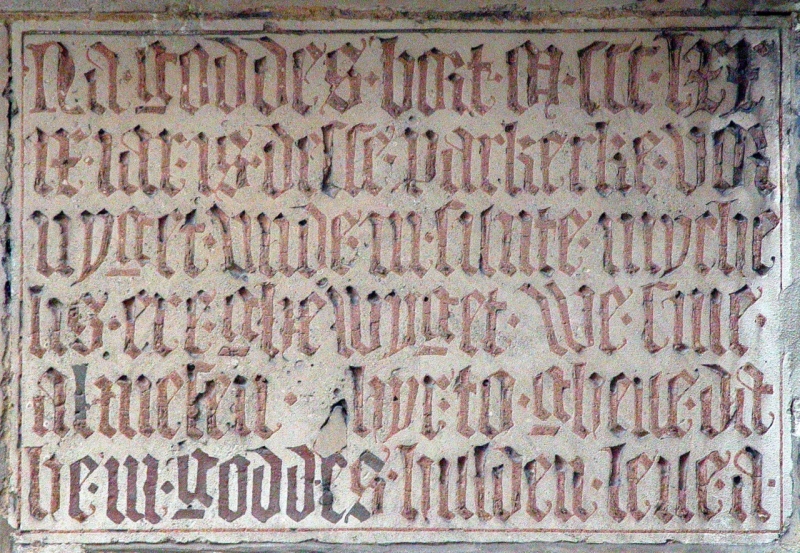 Na · goddes · bort · m · ccc · lxx
ix · iar · is · desse · parkerke · vor
nyget · unde · in · sunte · myche
lis · ere · ghewyget · We · sine ·
almesen · hyr · to · gheue · dat
he · in · goddes · hulden · leue · a ·